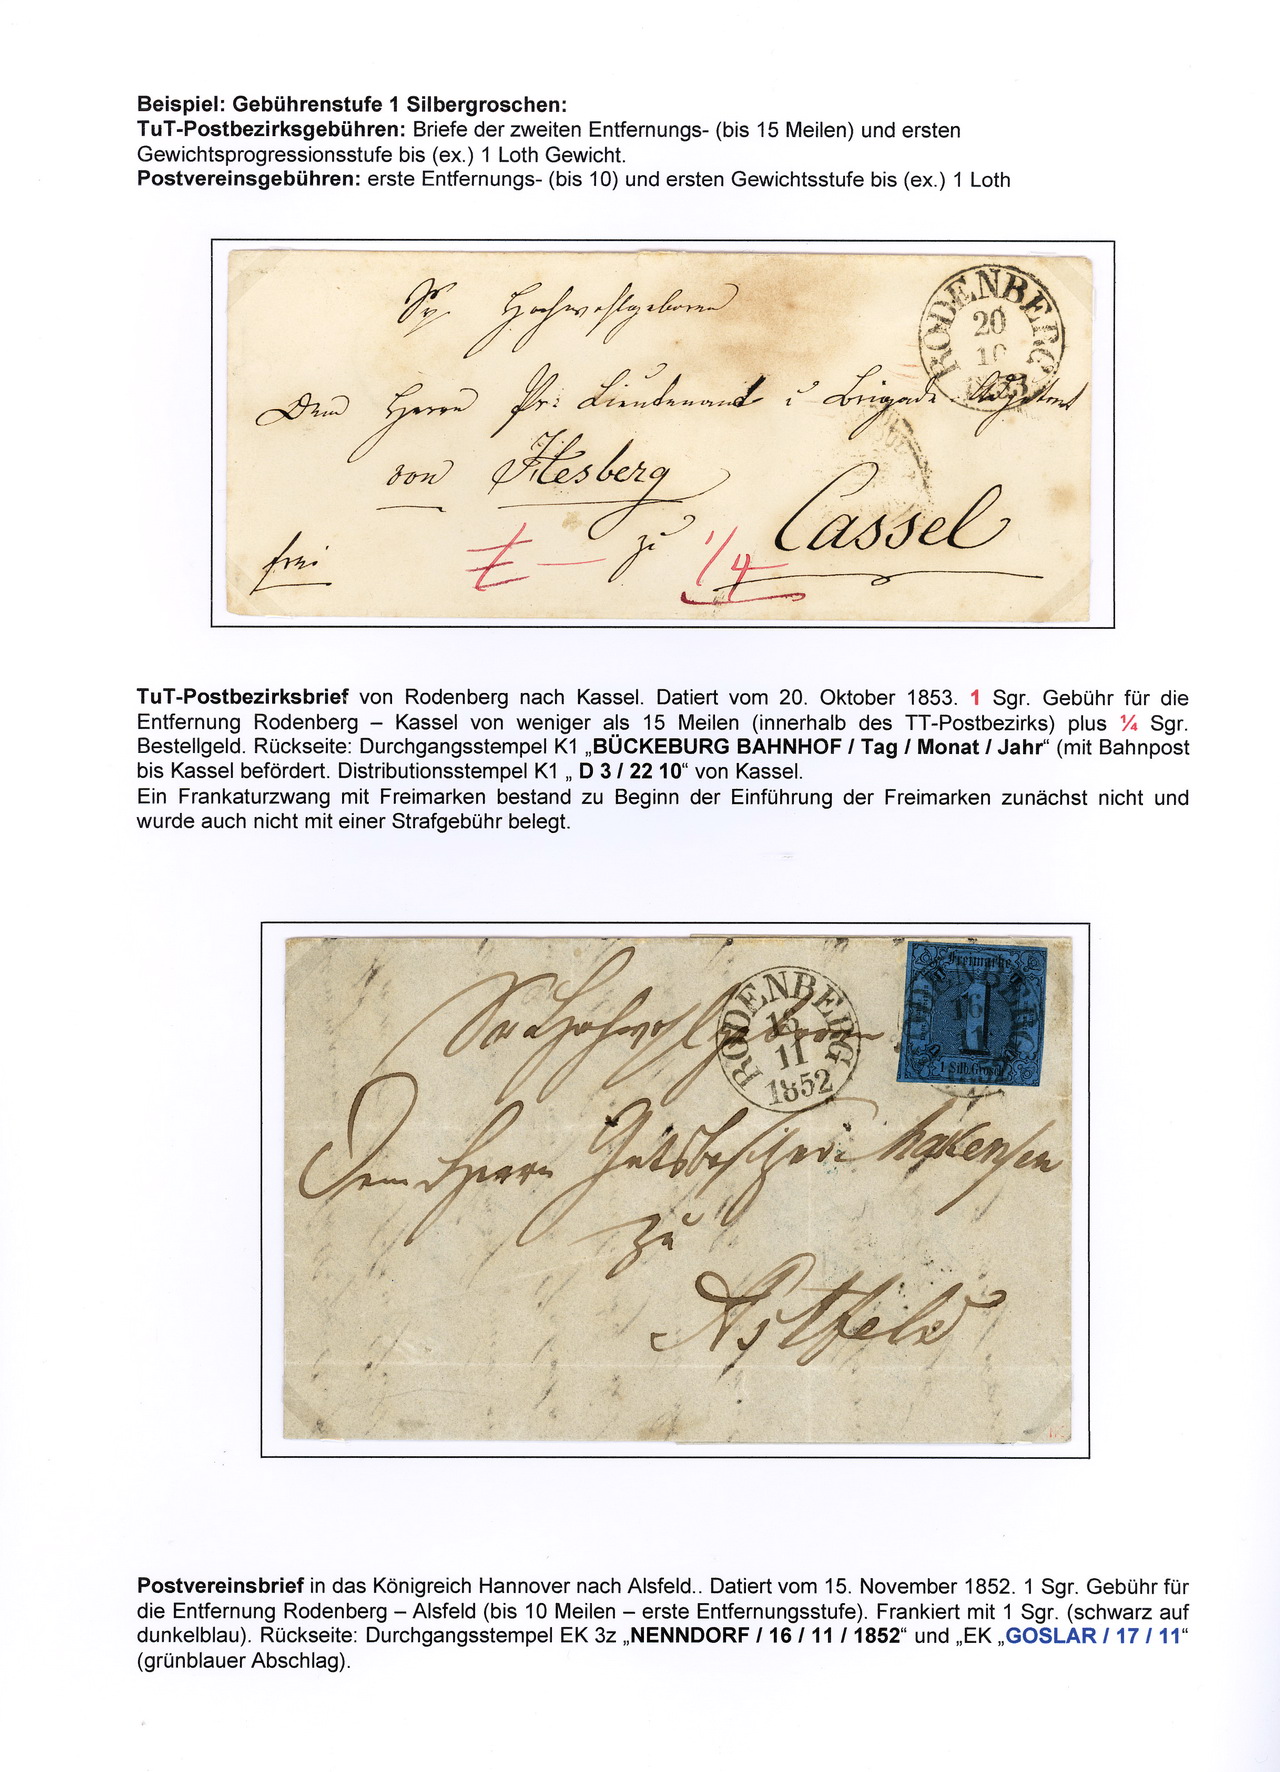 Beispiel: Gebührenstufe 1 Silbergroschen:
TuT-Postbezirksgebühren: Briefe der zweiten Entfernungs- (bis 15 Meilen) und ersten
Gewichtsprogressionsstufe bis (ex.) 1 Loth Gewicht.
Postvereinsgebühren: erste Entfernungs- (bis 10) und ersten Gewichtsstufe bis (ex.) 1 Loth
RODENBERG
20
10
1853
Hochwohlgeboren
Dem Herrn Pr: Lieutenant u Brigade Adjutant
von Hesberg
zu Cassel
frei
1/4
TuT-Postbezirksbrief von Rodenberg nach Kassel. Datiert vom 20. Oktober 1853. 1 Sgr. Gebühr für die
Entfernung Rodenberg – Kassel von weniger als 15 Meilen (innerhalb des TT-Postbezirks) plus ¼ Sgr.
Bestellgeld. Rückseite: Durchgangsstempel K1 „BÜCKEBURG BAHNHOF / Tag / Monat / Jahr“ (mit Bahnpost
bis Kassel befördert. Distributionsstempel K1 „ D 3 / 22 10“ von Kassel.
Ein Frankaturzwang mit Freimarken bestand zu Beginn der Einführung der Freimarken zunächst nicht und
wurde auch nicht mit einer Strafgebühr belegt.
Freimarke
1
1 Silb. Grosch
RODENBERG
16
11
1852
Sr Hochwohlgeboren
Dem Herrn Gutsbesitzer Hakensen
zu
Astfeld
Postvereinsbrief in das Königreich Hannover nach Alsfeld.. Datiert vom 15. November 1852. 1 Sgr. Gebühr für
die Entfernung Rodenberg – Alsfeld (bis 10 Meilen – erste Entfernungsstufe). Frankiert mit 1 Sgr. (schwarz auf
dunkelblau). Rückseite: Durchgangsstempel EK 3z „NENNDORF / 16 / 11 / 1852“ und „EK „GOSLAR / 17 / 11“
(grünblauer Abschlag).